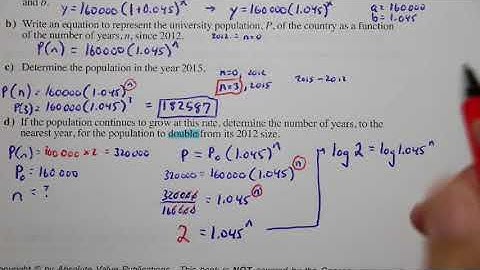 and b.
y=160000(1+0.045)ⁿ → y=160000(1.045)ⁿ
a=160000
b=1.045
b) Write an equation to represent the university population, P, of the country as a function
of the number of years, n, since 2012. 2012 = n=0
P(n) = 160000(1.045)ⁿ
c) Determine the population in the year 2015.
n=0, 2012
n=3, 2015
2015-2012
P(n) = 160000(1.045)ⁿ
P(3) = 160000(1.045)³ = 182587
d) If the population continues to grow at this rate, determine the number of years, to the
nearest year, for the population to double from its 2012 size.
P(n) = 160000 × 2 = 320000
P₀ = 160000
n = ?
P = P₀(1.045)ⁿ
320000 = 160000(1.045)ⁿ
320000/160000 = 1.045ⁿ
2 = 1.045ⁿ
log 2 = log 1.045ⁿ
Copyright © by Absolute Value Publications. This book is NOT covered by the